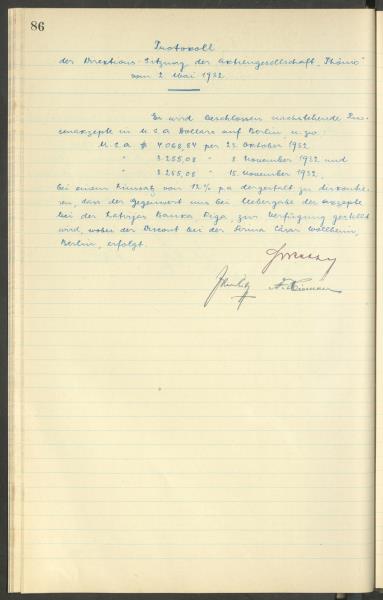 86
Protokoll
der Direktions-Sitzung der Aktiengesellschaft "Phönix"
vom 2 Mai 1932
Es wird beschlossen nachstehende
akzepte in U S A Dollars auf Berlin u. zw:
U. S. A $ 4.068,84 per 25 Oktober 1932
" 3.255,08 " 8 November 1932 und
" 3.255,08 " 15. November 1932,
bei einem Zinssatz von 12% p. a dergestalt zu diskontie-
ren, dass der Gegenwert uns bei Uebergabe der Akzepte
bei der Latvijas Banka Riga, zur Verfügung gestellt
wird, wobei der Discont bei der Firma Cäsar Wollheim,
Berlin, erfolgt.